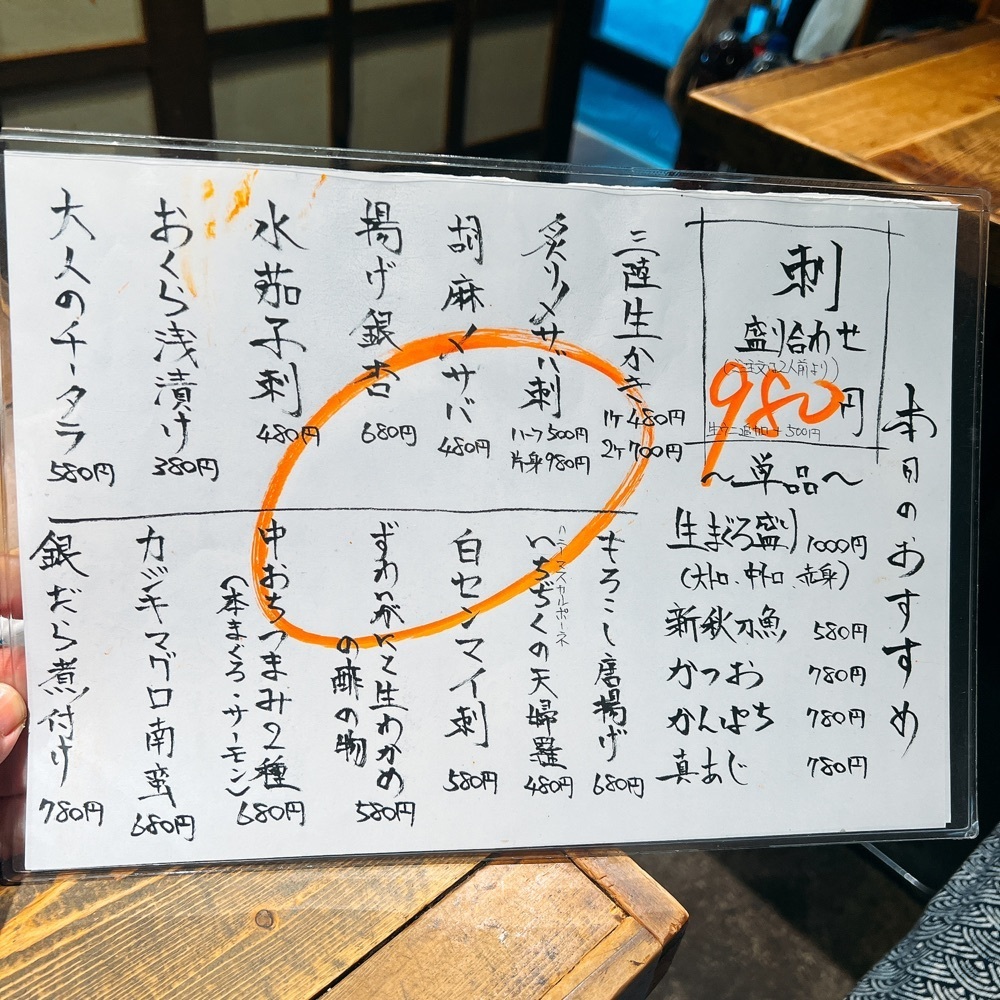 本日のおすすめ
刺
盛り合わせ
(ご注文は2人前より)
980円
生ウニ追加 + 500円
〜単品〜
生まぐろ盛り 1000円
(大トロ、中トロ、赤身)
新秋刀魚 580円
かつお 780円
かんぱち 780円
真あじ 780円
三陸生かき 1ケ 480円 2ケ 700円
炙り〆サバ刺 ハーフ 500円 片身 980円
胡麻〆サバ 480円
揚げ銀杏 680円
水茄子刺 480円
おくら浅漬け 380円
大人のチータラ 580円
もろこし唐揚げ 680円
ハニーマスカルポーネ
いちぢくの天婦羅 480円
白センマイ刺 580円
ずわいがにと生わかめ
の酢の物 580円
中おちつまみ2種 680円
(本まぐろ・サーモン)
カジキマグロ南蛮 680円
銀だら煮付け 780円